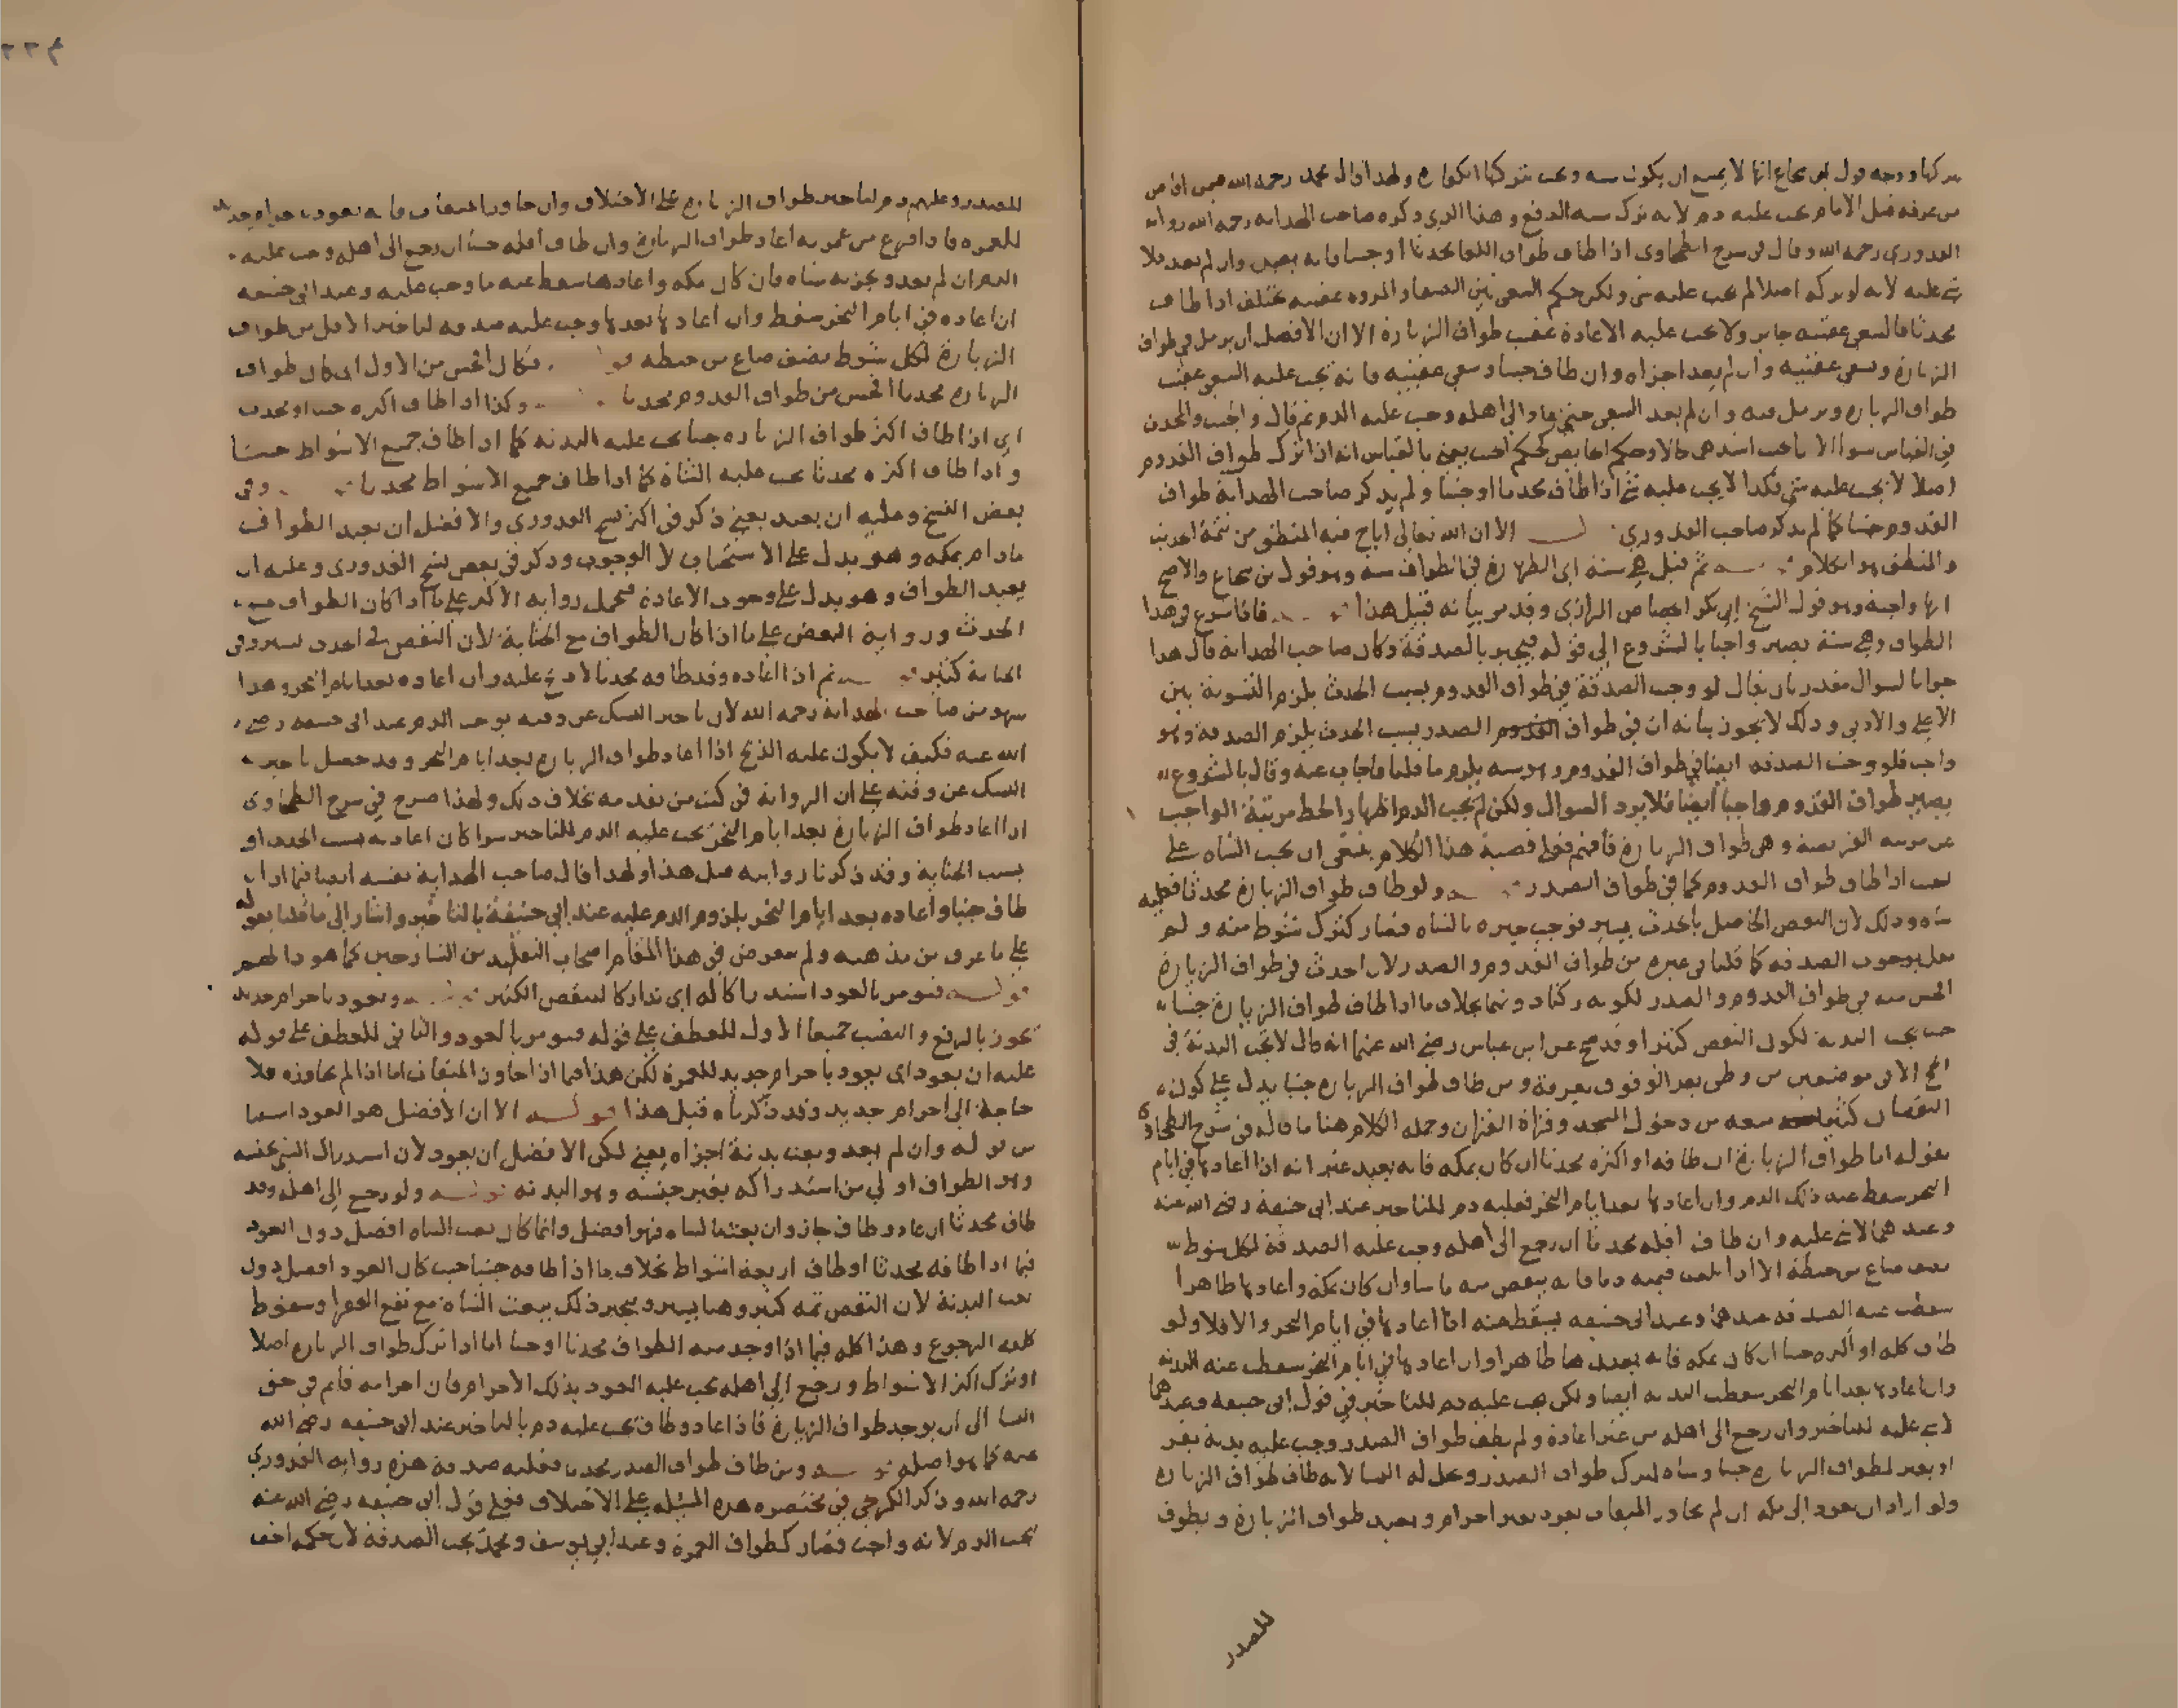 من عرفه قبل الامام يجب عليه دم لانه ترك سنة الدفع وهذا الذي ذكره صاحب الهداية رحمه الله رواية
القدوري رحمه الله وقال في شرح الطحاوي اذا طاف طواف اللقا محدثا او جنبا فانه يعيد وان لم يعد فلا
شي عليه لانه لو تركه اصلا لم يجب عليه شي ولكن حكم السعي بين الصفا والمروة عقيبه يختلف اذا طاف
محدثا فالسعي عقيبه جايز ولا يجب عليه الاعادة عقيب طواف الزيارة الا ان الافضل ان يرمل في طواف
الزيارة وسعى عقيبه وان لم يعد اجزاه وان طاف جنبا وسعى عقيبه فانه يجب عليه السعي عقيب
طواف الزيارة ويرمل فيه وان لم يعد السعي حتى عاد الى اهله وجب عليه الدم ثم قال والجنب والمحدث
في القياس سوا الا ان الجنب اشدهما حالا وحكم الحايض كحكم الجنب يعني بالقياس انه اذا ترك طواف القدوم
اصلا لا يجب عليه شي فكذا لا يجب عليه شي اذا طاف محدثا او جنبا ولم يذكر صاحب الهداية طواف
القدوم جنبا كما لم يذكر صاحب القدوري الا ان الله تعالى اباح فيه المنطق من تتمة الحديث
والمنطق هو الكلام ثم قيل هي سنة اي الطهارة في الطواف سنة وهو قول ابن شجاع والاصح
انها واجبة وهو قول الشيخ ابي بكر الجصاص الرازي وقد مر بيانه قبيل هذا فاذا شرع في هذا
الطواف وهي سنة يصير واجبا بالشروع الى قوله فيجبر بالصدقة وكان صاحب الهداية قال هذا
جوابا لسوال مقدر بان يقال لو وجب الصدقة في طواف القدوم بسبب الحدث يلزم التسوية بين
الاعلى والادنى وذلك لا يجوز بيانه ان في طواف القدوم الصدر بسبب الحدث يلزم الصدقة وهو
واجب فلو وجب الصدقة ايضا في طواف القدوم وهو سنة يلزم ما قلنا فاجاب عنه وقال بالشروع
يصير طواف القدوم واجبا ايضا فلا يرد السوال ولكن لم يجب الدم اظهارا لحط مرتبة الواجب
عن مرتبة الفريضة وهي طواف الزيارة فافهم فعلى قضية هذا الكلام ينبغي ان يجب الشاة على
الجنب اذا طاف طواف القدوم كما في طواف الصدر ولو طاف طواف الزيارة محدثا فعليه
شاة وذلك لان النقص الحاصل بالحدث يسير فوجب جبره بالشاة فصار كترك شوط منه ولم
نقل بوجوب الصدقة كما قلنا في غيره من طواف القدوم والصدر لان الحدث في طواف الزيارة
افحش منه في طواف القدوم والصدر لكونه ركنا دونهما بخلاف ما اذا طاف طواف الزيارة جنبا
حيث يجب البدنة لكون النقص كثيرا وقد صح عن ابن عباس رضي الله عنهما انه قال لا تجب البدنة في
الحج الا في موضعين من وطى بعد الوقوف بعرفة ومن طاف طواف الزيارة جنبا يدل على كون
النقصان كثيرا منعه من دخول المسجد وقراة القران وجملة الكلام هنا ما قاله في شرح الطحاوي
بقوله اما طواف الزيارة ان طافه او اكثره محدثا ان كان بمكة فانه يعيد غير انه اذا اعادها في ايام
النحر سقط عنه ذلك الدم وان اعادها بعد ايام النحر فعليه دم للتاخير عند ابي حنيفة رضي الله عنه
وعندهما لا شي عليه وان طاف اقله محدثا ان رجع الى اهله وجب عليه الصدقة لكل شوط
نصف صاع من حنطة الا اذا بلغت قيمته دما فانه ينقص منه ما شا وان كان بمكة واعادها طاهرا
سقطت عنه الصدقة عندهما وعند ابي حنيفة يسقط عنه اذا اعادها في ايام النحر والا فلا ولو
طاف كله او اكثره جنبا ان كان بمكة فانه يعيدها طاهرا وان اعادها في ايام النحر سقطت عنه البدنة
وان اعادها بعد ايام النحر سقطت البدنة ايضا ولكن يجب عليه دم للتاخير في قول ابي حنيفة وعندهما
لا شي عليه للتاخير وان رجع الى اهله من غير اعادة ولم يطف طواف الصدر وجب عليه بدنة بقر
او بعير لطواف الزيارة جنبا وشاة لترك طواف الصدر وحل له النسا لانه طاف طواف الزيارة
ولو اراد ان يعود الى مكة ان لم يجاوز الميقات يعود بغير احرام ويعيد طواف الزيارة ويطوف
للصدر
للصدر وعليه دم لتاخير طواف الزيارة على الاختلاف وان جاوز الميقات فانه يعود باحرام جديد
للعمرة فاذا فرغ من عمرته اعاد طواف الزيارة وان طاف اقله جنبا ان رجع الى اهله وجب عليه
الدم ان لم يعد ويجزيه شاة فان كان بمكة واعادها سقط عنه ما وجب عليه وعند ابي حنيفة
ان اعاده في ايام النحر سقط وان اعادها بعدها وجب عليه صدقة لتاخير الاقل من طواف
الزيارة لكل شوط نصف صاع من حنطة فكان افحش من الاول اي كان طواف
الزيارة محدثا افحش من طواف القدوم محدثا وكذا اذا طاف اكثره جنبا او محدثا
اي اذا طاف اكثر طواف الزيارة جنبا يجب عليه البدنة كما اذا طاف جميع الاشواط جنبا
واذا طاف اكثره محدثا يجب عليه الشاة كما اذا طاف جميع الاشواط محدثا وفي
بعض النسخ وعليه ان يعيد يعني ذكر في اكثر نسخ القدوري والافضل ان يعيد الطواف
ما دام بمكة وهو يدل على الاستحباب لا الوجوب وذكر في بعض نسخ القدوري وعليه ان
يعيد الطواف وهو يدل على وجوب الاعادة فيحمل رواية الاكثر على ما اذا كان الطواف مع
الحدث ورواية البعض على ما اذا كان الطواف مع الجنابة لان النقص في الحدث يسير وفي
الجنابة كثير ثم اذا اعاده وقد طافه محدثا لا ذبح عليه وان اعاده بعد ايام النحر وهذا
سهو من صاحب الهداية رحمه الله لان تاخير النسك عن وقته يوجب الدم عند ابي حنيفة رضي
الله عنه فكيف لا يكون عليه الذبح اذا اعاد طواف الزيارة بعد ايام النحر وقد حصل تاخير
النسك عن وقته على ان الرواية في كتب من تقدمه بخلاف ذلك ولهذا صرح في شرح الطحاوي
اذا اعاد طواف الزيارة بعد ايام النحر يجب عليه الدم للتاخير سوا كان اعادته بسبب الحدث او
بسبب الجنابة وقد ذكرنا روايته قبل هذا ولهذا قال صاحب الهداية نفسه ايضا فيما اذا
طاف جنبا واعاده بعد ايام النحر يلزم الدم عليه عند ابي حنيفة بالتاخير واشار الى ما قلنا بقوله
على ما عرف من مذهبه ولم يتعرض في هذا المقام اصحاب التقليد من الشارحين كما هو دابهم
قوله فيومر بالعود استدراكا له اي تداركا للنقص الكثير ويعود باحرام جديد
يجوز بالرفع والنصب جميعا الاول للعطف على قوله فيومر بالعود والثاني للعطف على قوله
عليه ان يعود اي يعود باحرام جديد للعمرة لكن هذا فيما اذا جاوز الميقات اما اذا لم يجاوزه فلا
حاجة الى احرام جديد وقد ذكرناه قبيل هذا قوله الا ان الافضل هو العود استثنا
من قوله وان لم يعد وبعث بدنة اجزاه يعني لكن الافضل ان يعود لان استدراك الشي بجنسه
وهو الطواف اولى من استدراكه بغير جنسه وهو البدنة قوله ولو رجع الى اهله وقد
طاف محدثا ان عاد وطاف جاز وان بعث بالشاة فهو افضل وانما كان بعث الشاة افضل دون العود
فيما اذا طافه محدثا او طاف اربعة اشواط بخلاف ما اذا طافه جنبا حيث كان العود افضل دون
بعث البدنة لان النقص ثمة كثير وهنا يسير ويجبر ذلك ببعث الشاة مع نفع الفقرا وسقوط
كلفة الرجوع وهذا كله فيما اذا وجد منه الطواف محدثا او جنبا اما اذا ترك طواف الزيارة اصلا
او ترك اكثر الاشواط ورجع الى اهله يجب عليه العود بذلك الاحرام فان احرامه قايم في حق
النسا الى ان يوجد طواف الزيارة فاذا عاد وطاف يجب عليه دم بالتاخير عند ابي حنيفة رضي الله
عنه كما هو اصله قوله ومن طاف طواف الصدر محدثا فعليه صدقة هذه رواية القدوري
رحمه الله وذكر الكرخي في مختصره هذه المسئلة على الاختلاف فعلى قول ابي حنيفة رضي الله عنه
يجب الدم لانه واجب فصار كطواف العمرة وعند ابي يوسف ومحمد يجب الصدقة لان حكمه اخف